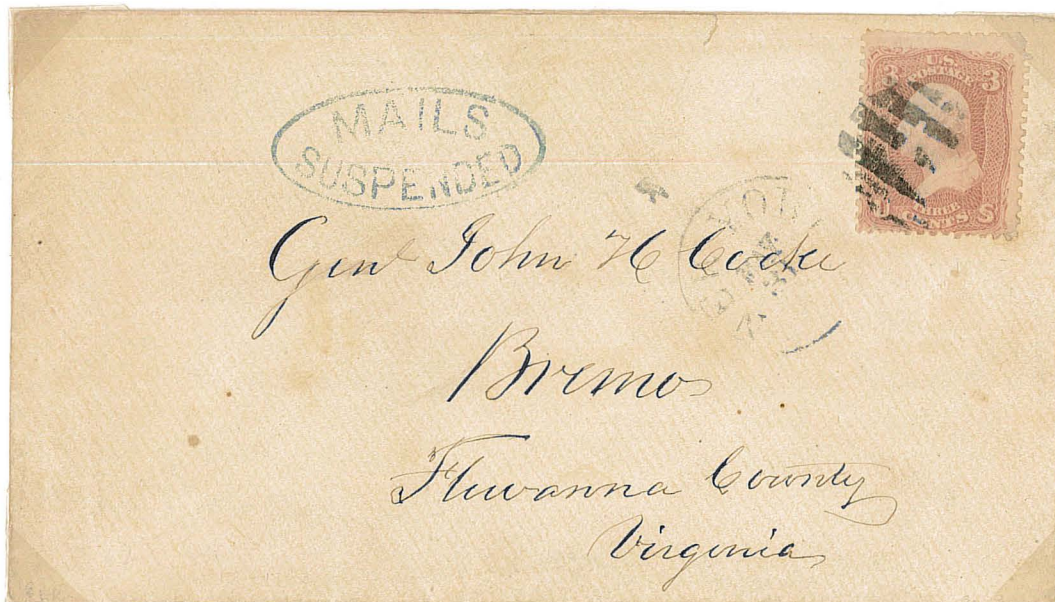 MAILS
SUSPENDED
3 U.S. 3
POSTAGE
THREE
CENTS
Genl John H Cocke
Bremo
Fluvanna County
Virginia